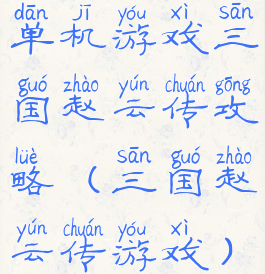 dān jī yóu xì sān
单机游戏三
guó zhào yún chuán gōng
国赵云传攻
lüè sān guó zhào
略（三国赵
yún chuán yóu xì
云传游戏）